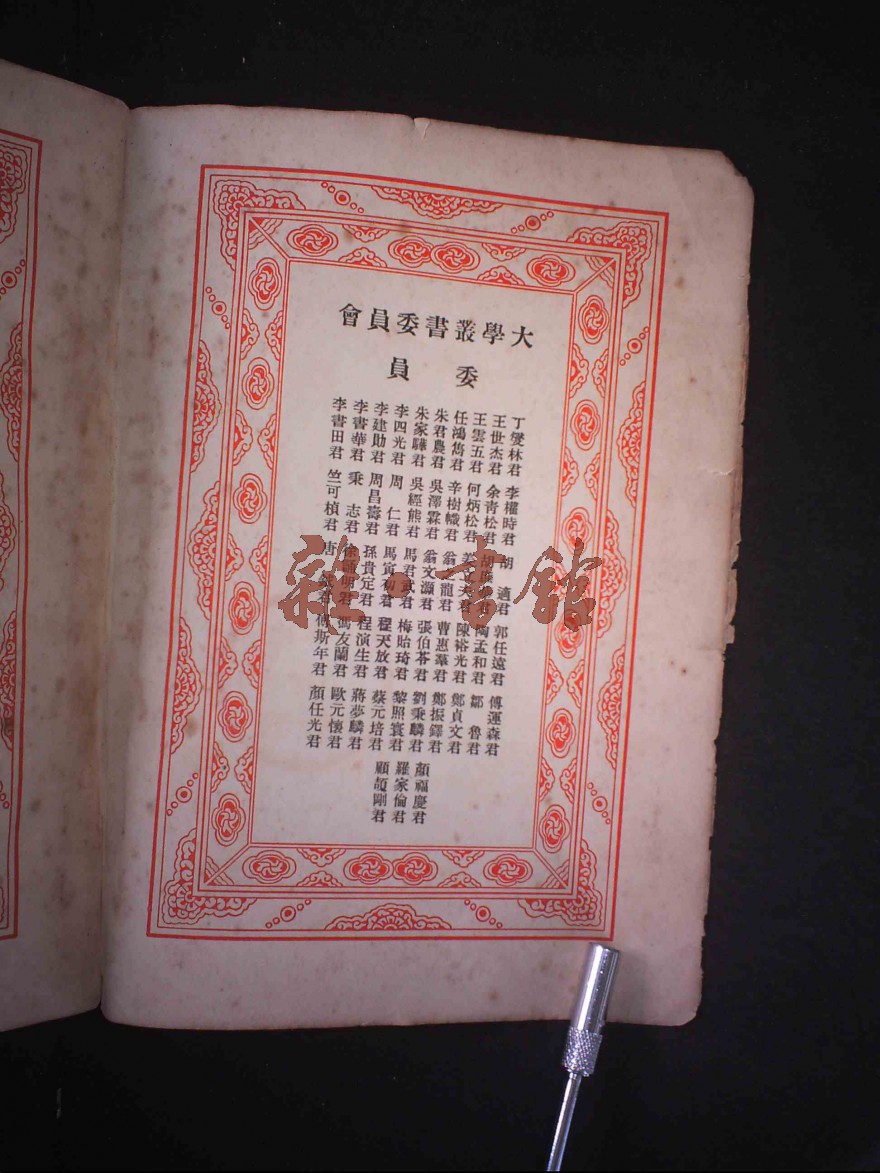 大學叢書委員會
委員
丁燮林君
王世杰君
王雲五君
任鴻雋君
朱經農君
朱家驊君
李四光君
李建勛君
李書華君
李書田君
李權時君
余青松君
何炳松君
辛樹幟君
吳澤霖君
吳經熊君
周仁君
周昌壽君
秉志君
竺可楨君
胡適君
胡庶華君
姜立夫君
翁之龍君
翁文灝君
馬君武君
馬寅初君
孫貴定君
徐誦明君
唐鉞君
郭任遠君
陶孟和君
陳裕光君
曹惠羣君
張伯苓君
梅貽琦君
程天放君
程演生君
馮友蘭君
傅斯年君
傅運森君
鄒魯君
鄭貞文君
鄭振鐸君
劉秉麟君
黎照寰君
蔡元培君
蔣夢麟君
歐元懷君
顏任光君
顏福慶君
羅家倫君
顧頡剛君
雜·書館